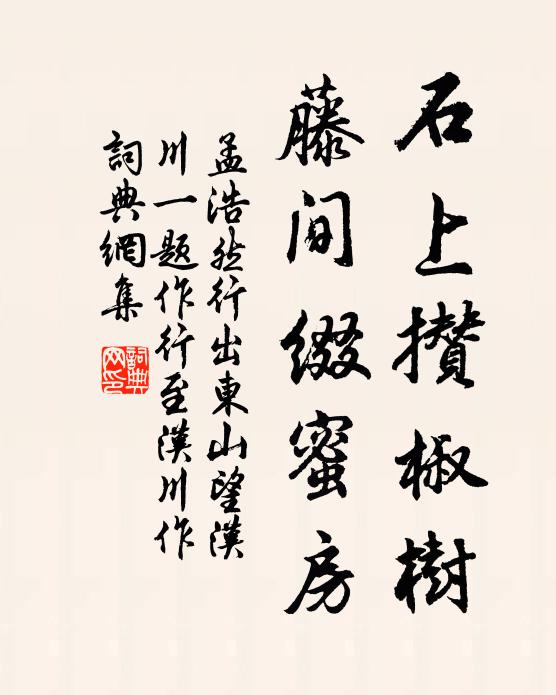 石上攢椒樹
藤間綴蜜房
孟浩然行出東山望漢
川一題作行至漢川作
詞典網集
詞典網印